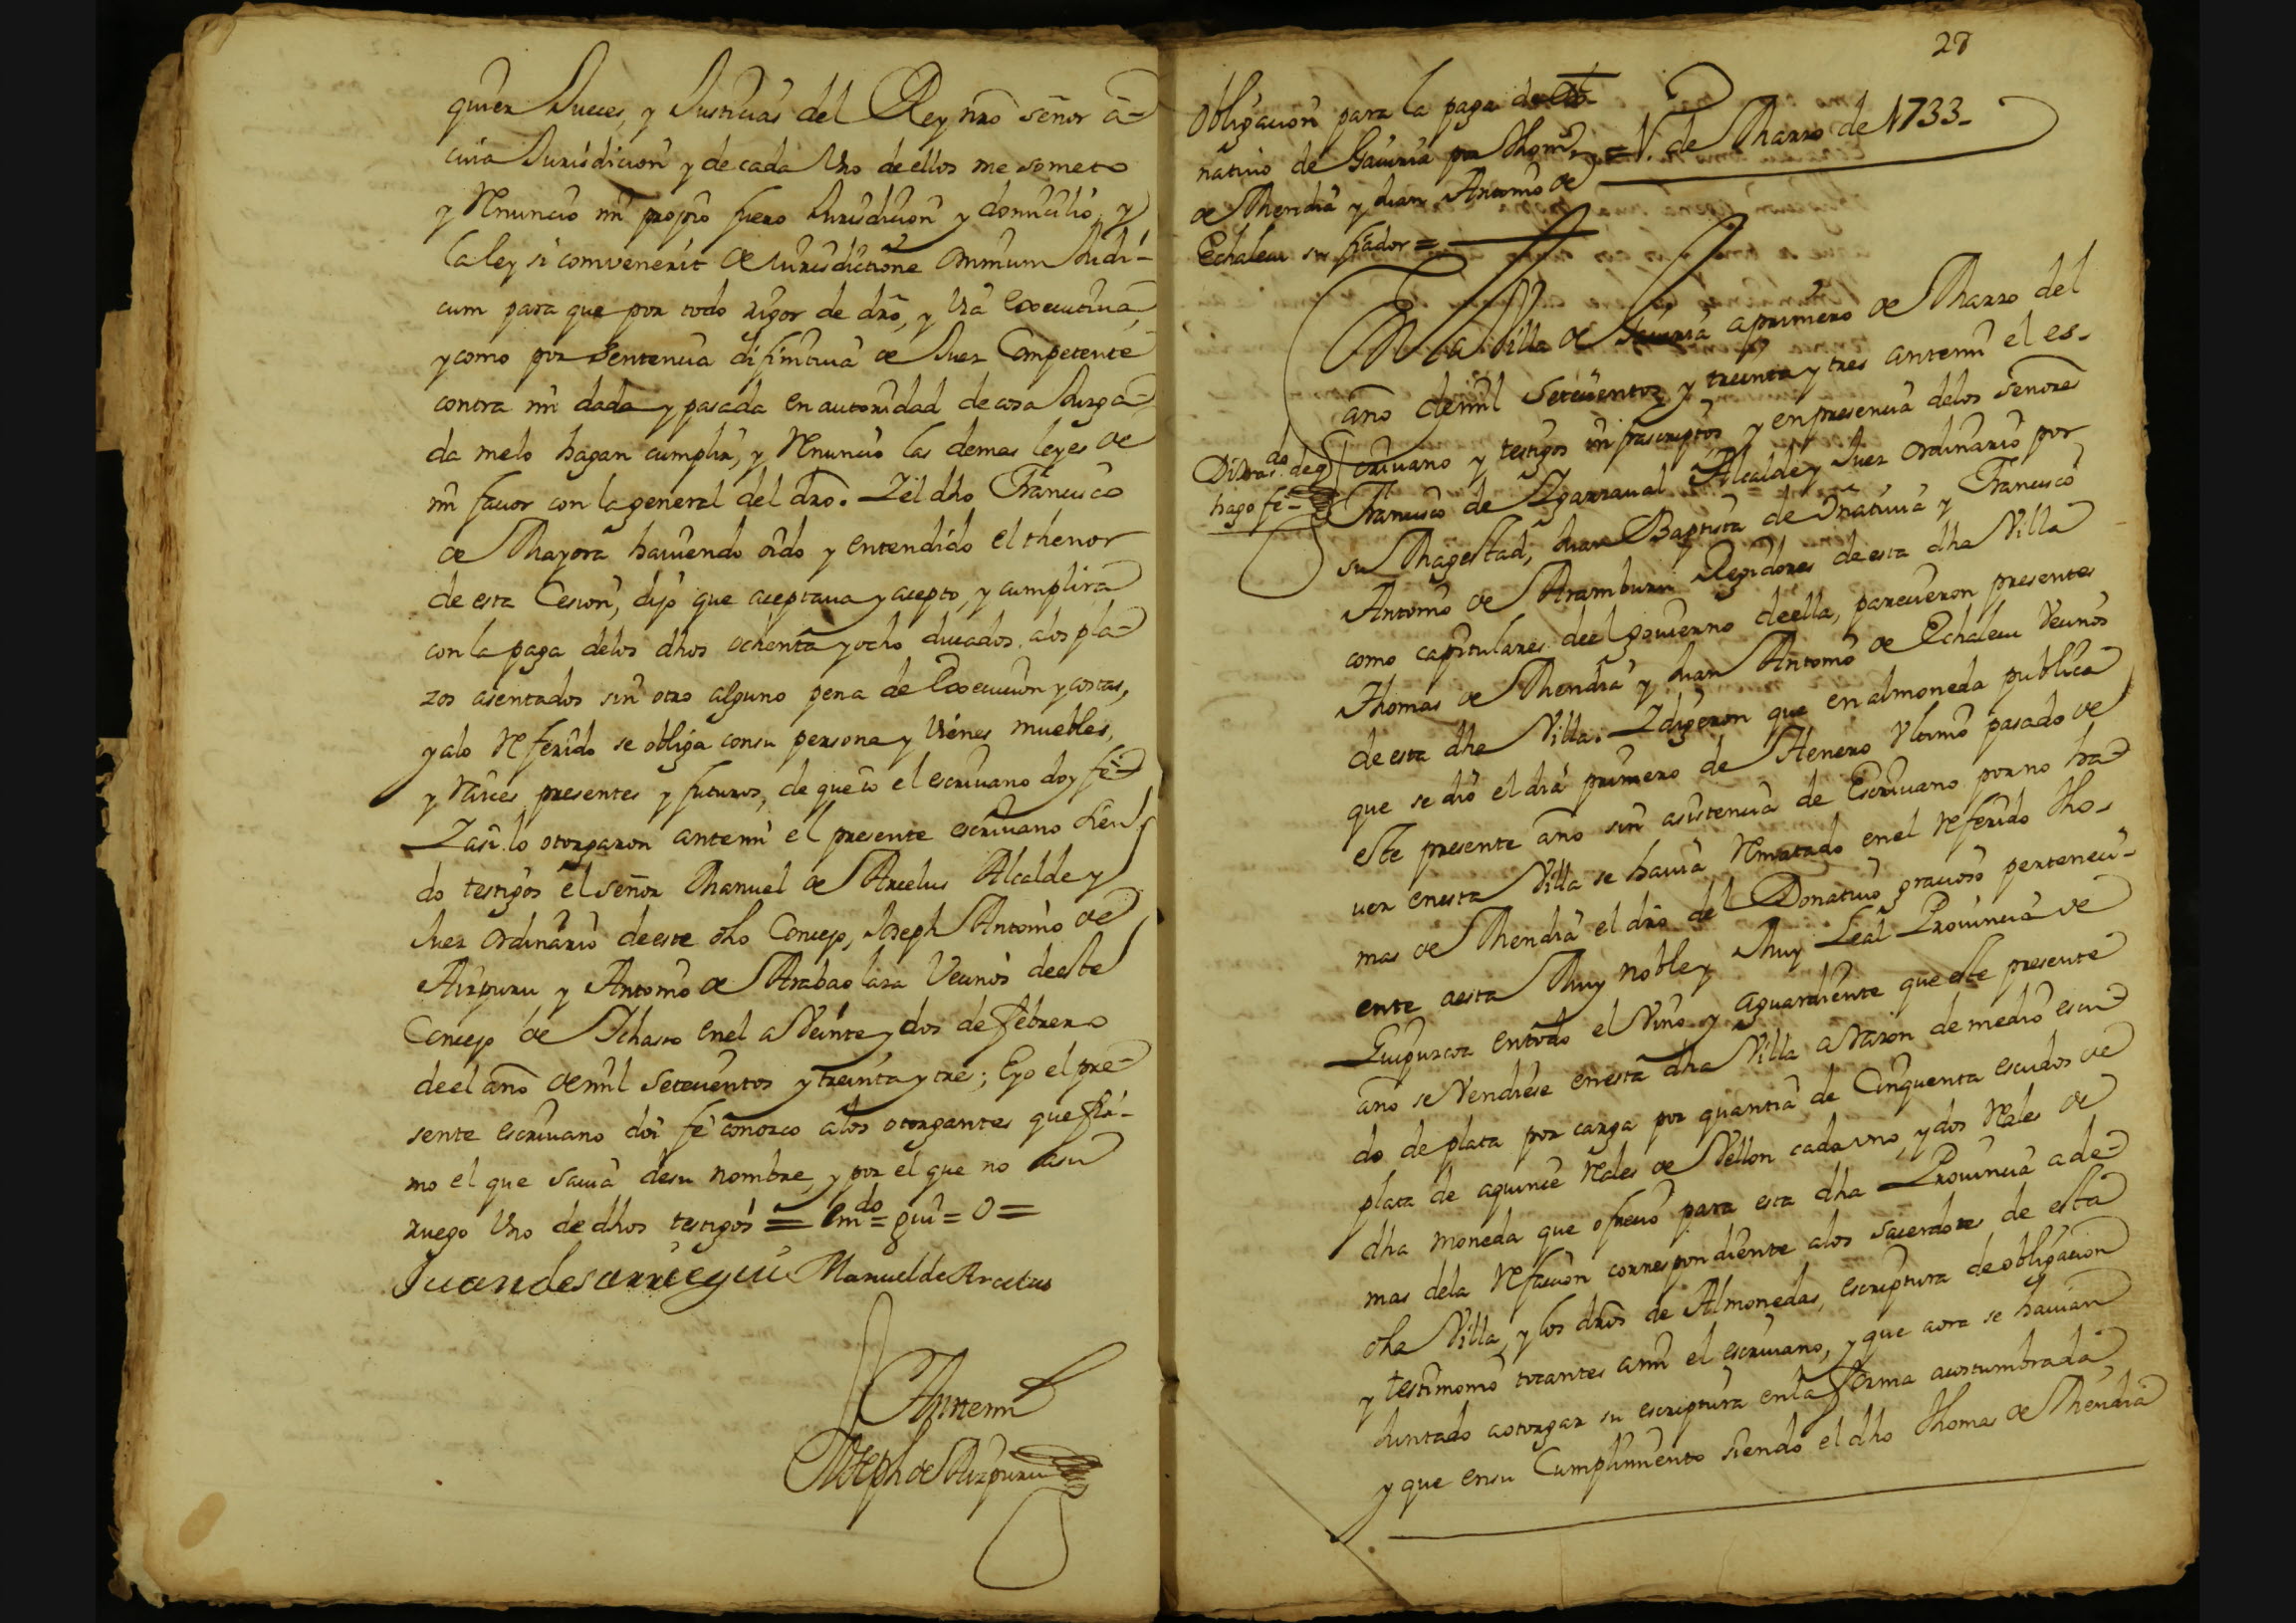 quier Jueces, y Justicias del Rey nro señor a
cuia Jurisdicion y de cada Vno de ellos me someto
y Renuncio mi propio fuero Jurisdicion y domicilio, y
la ley si convenerit de Jurisdictione omnium Judi-
cum para que por todo rigor de dro, y Via executiva,
y como por Sentencia difinitiva de Juez Competente
contra mi dada y pasada en autoridad de cosa Juzga-
da melo hagan cumplir, y Renuncio las demas leyes de
mi favor con la general del dro. Y el dho Francisco
de Mayora haviendo oido y entendido el thenor
de esta Cesion, dijo que aceptava y acepto, y cumplira
con la paga delos dhos ochenta y ocho ducados alos pla-
zos asentados sin otro alguno pena de execucion y costas,
y alo Referido se obliga consu persona y Vienes muebles,
y Raices presentes y futuros, de que io el escrivano doy fe
Y asi lo otorgaron antemi el presente escrivano sien-
do testigos el señor Manuel de Arcelus Alcalde y
Juez ordinario de este dho Concejo, Joseph Antonio de
Aizpuru y Antonio de Arabaolaza Vecinos de este
Concejo de Ichaso en el a Veinte y dos de Febrero
de el año de mil Setecientos y treinta y tres; E yo el pre-
sente escrivano doi fe conozco alos otorgantes que fir-
mo el que savia desu nombre, y por el que no asu
ruego Vno de dhos testigos = Em.do = gui = O =
Juan de sarriegui Manuel de Arcelus
Antemi
Joseph de Aizpuru
28
Obligacion para la paga de Do-
nativo de Gaviria por Thomas
de Mendia y Juan Antonio de
Echaleu su fiador =
= 1. de Marzo de 1733-
En la Villa de Gaviria a primero de Marzo del
año de mil Setecientos y treinta y tres antemi el es-
crivano y testigos infrascriptos, y en presencia delos señores
hago fe
Francisco de Ygarzaval Alcalde y Juez ordinario por
su Magestad, Juan Baptista de Oñativia y Francisco
Antonio de Aramburu Regidores de esta dha Villa
como capitulares del govierno de ella, parecieron presentes
Thomas de Mendia y Juan Antonio de Echaleu Vecinos
de esta dha Villa. Y digeron que en almoneda publica
que se dio el dia primero de Henero Vltimo pasado de
este presente año sin asistencia de Escrivano por no ha-
ver en esta Villa se havia Rematado en el referido Tho-
mas de Mendia el dro de el Donativo gracioso pertenec-
iente a esta Muy noble y Muy Leal Provincia de
Guipuzcoa en todo el Vino y aguardiente que este presente
año se Vendiese en esta dha Villa a Razon de medio escu-
do de plata por carga por quantia de Cinquenta escudos de
plata de a quince Reales de Vellon cada vno, y dos Reales de
dha moneda que ofrecio para esta dha Provincia a de-
mas dela Refacion correspondiente alos Sacerdotes de esta
dha Villa, y los dros de Almonedas, escriptura de obligacion
y testimonio tocantes ami el escrivano, y que aora se havian
Juntado a otorgar su escriptura en la Forma acostumbrada,
y que en su Cumplimiento siendo el dho Thomas de Mendia